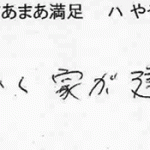 あまあ満足 ハ や
く 家が 建